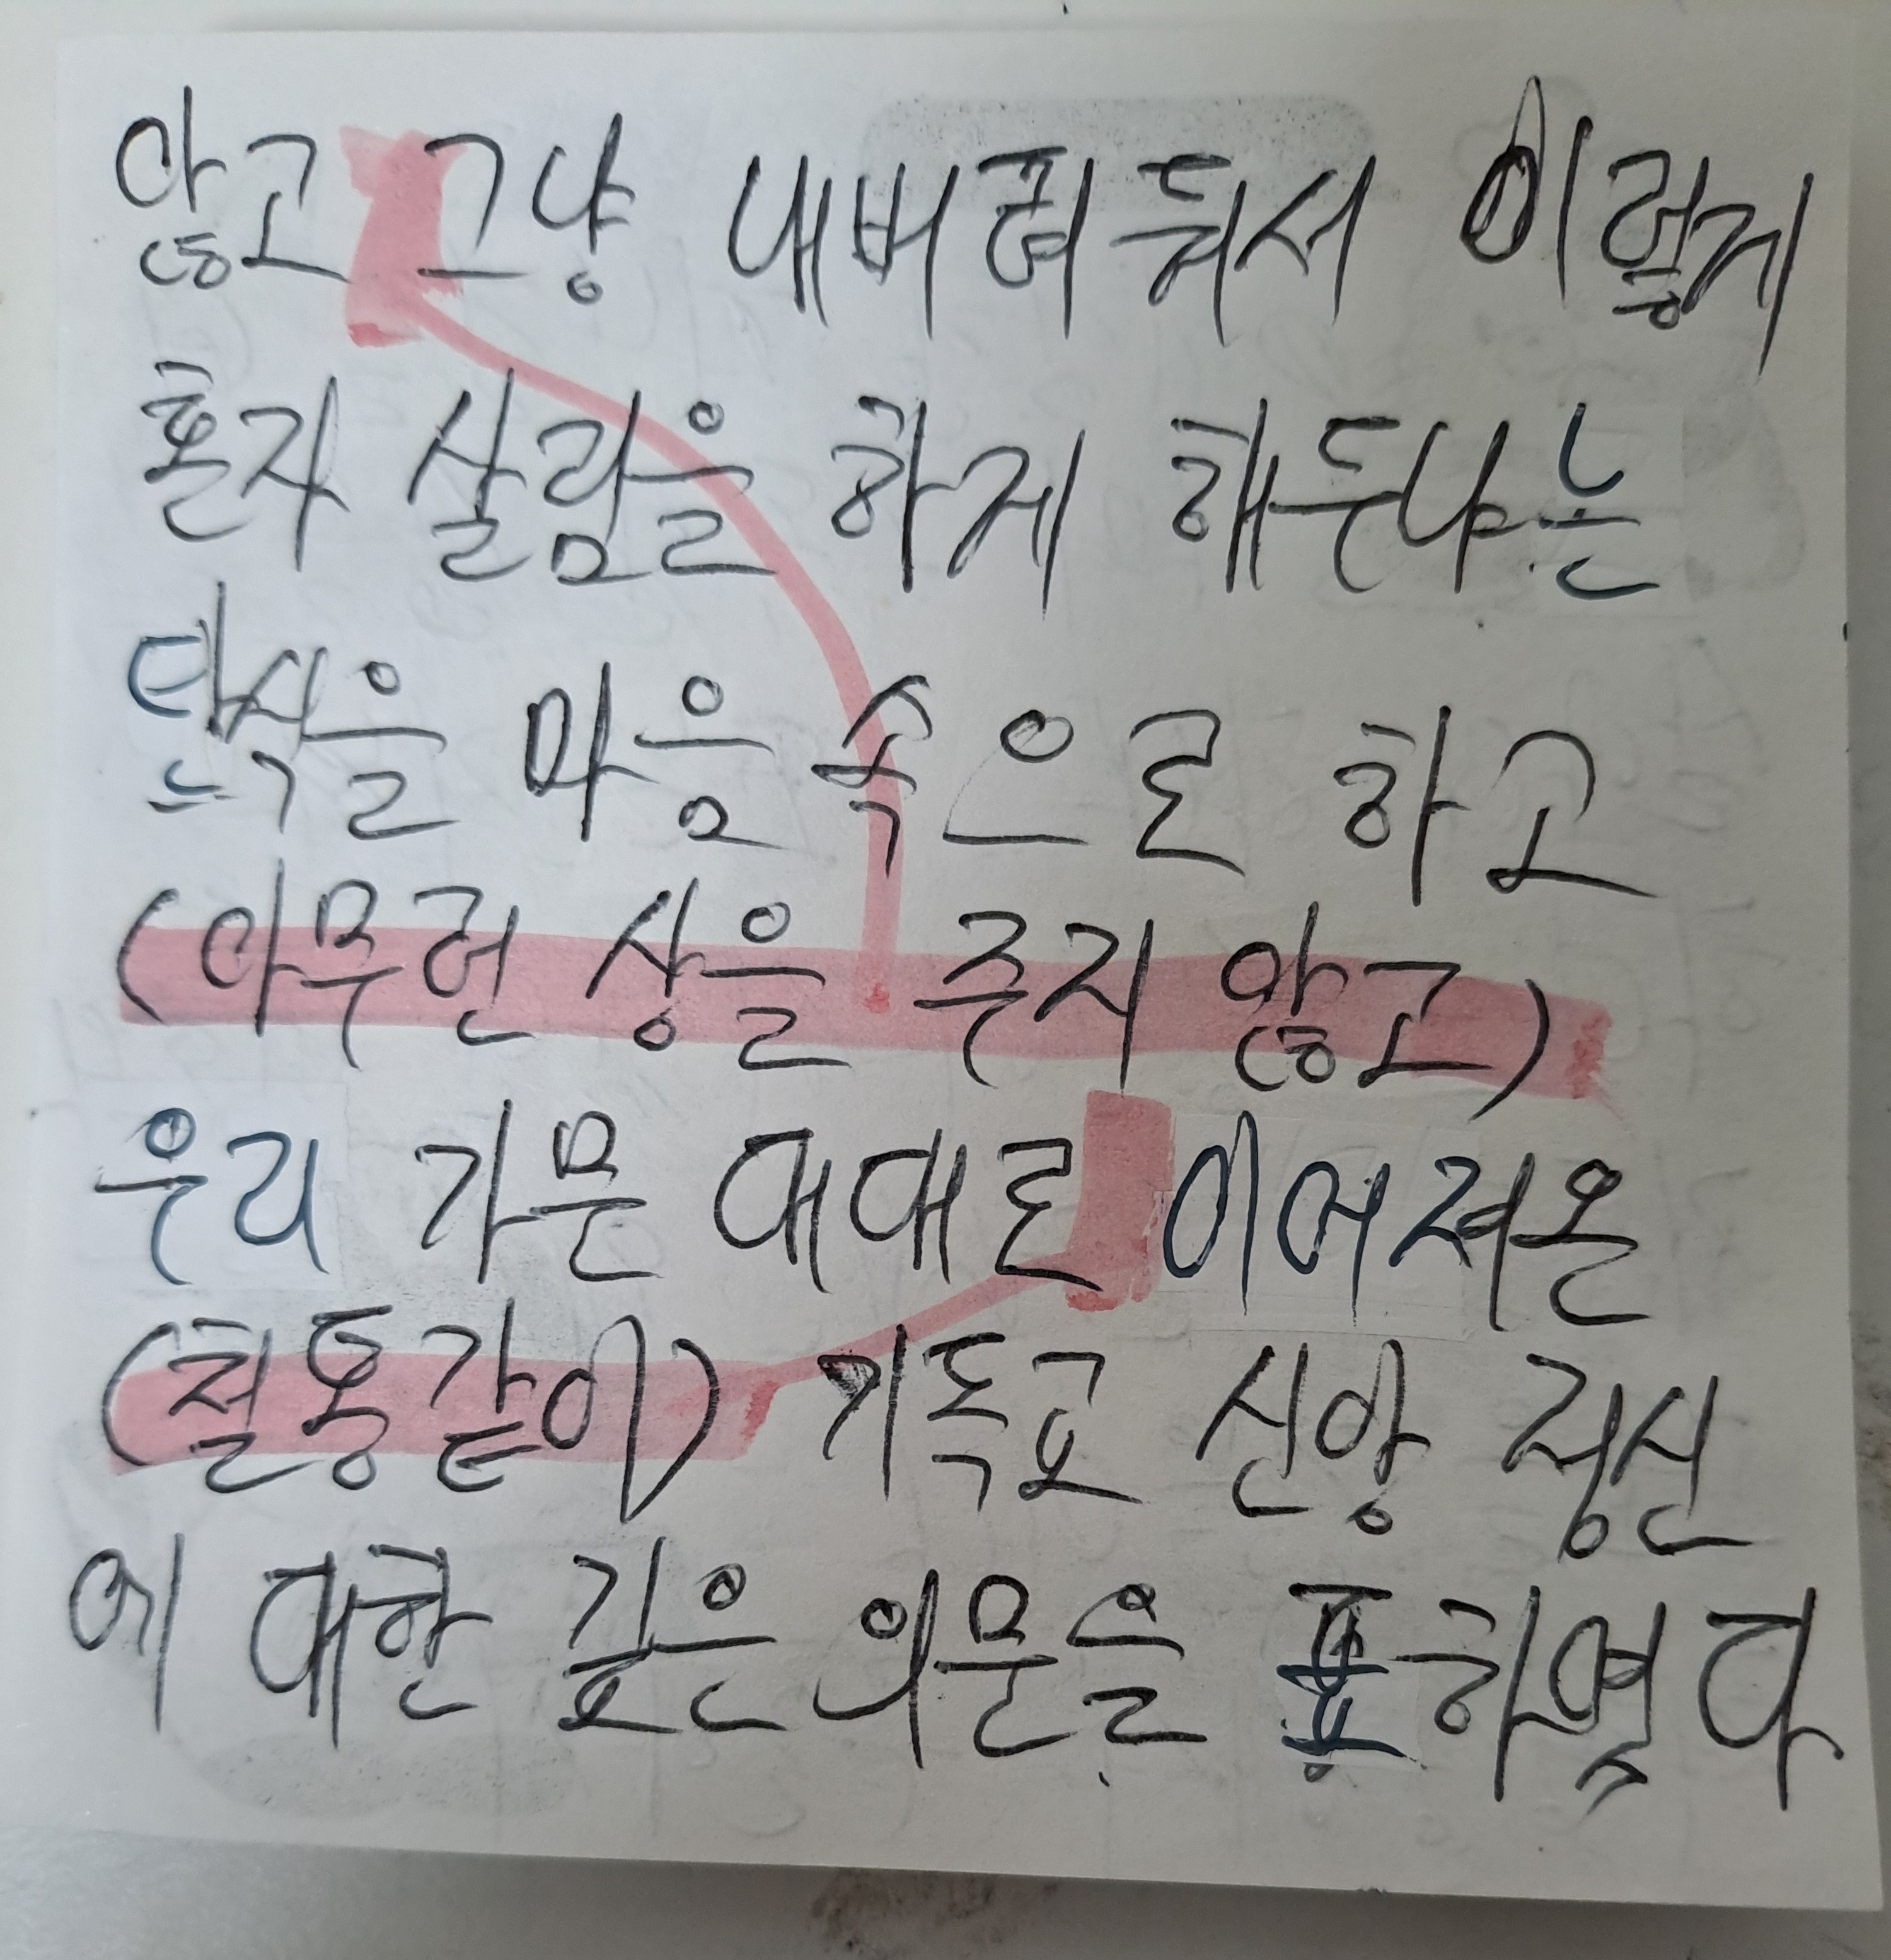 않고 그냥 내버려둬서 이렇게
혼자 살림을 하게 해두냐는
탄식을 마음 속으로 하고
(아무런 상을 주지 않고)
우리 가문 대대로 이어져온
(철통같이) 기독교 신앙 정신
에 대한 깊은 의문을 표하였다